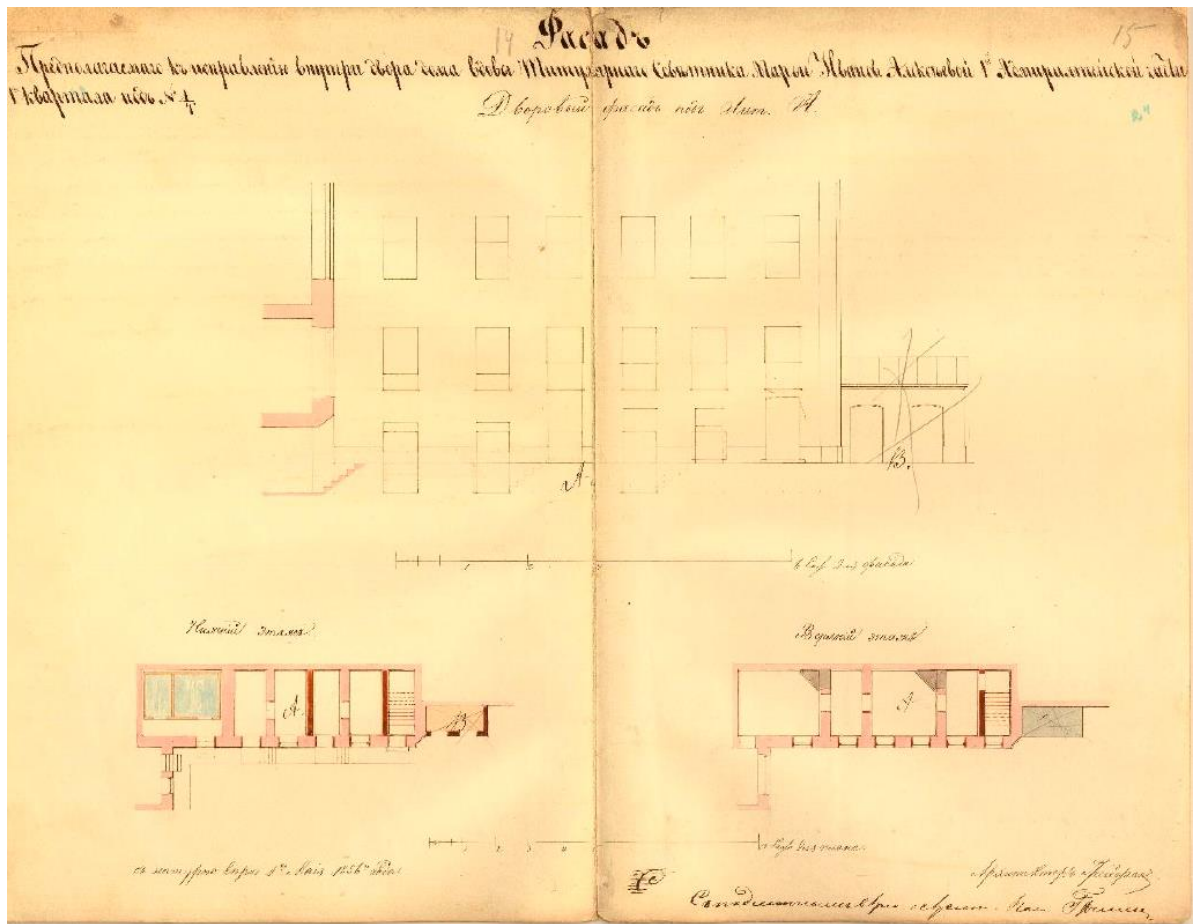 14
15
Фасадъ
Предполагаемаго къ исправленію внутри двора дома вдовы Титулярнаго Совѣтника Марьи Иванов. 1й Адмиралтейской части
1го квартала подъ № 4/1.
Дворовый фасадъ подъ Лит. А.
24
А.
В.
саж. для фасада
Нижній этажъ.
Верхній этажъ
А.
В
А
для плана.
съ натурою вѣрно 1го Маія 1856го года.
Архитекторъ
Съ подлиннымъ вѣрно